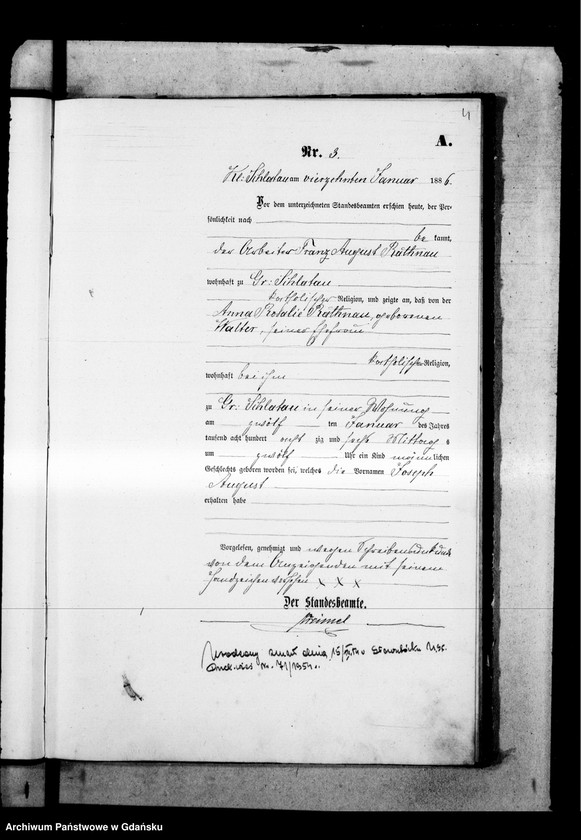 4
A.
Nr. 3.
Kl: Schlatau am vierzehnten Januar 1886.
Vor dem unterzeichneten Standesbeamten erschien heute, der Per-
sönlichkeit nach
be kannt,
der Arbeiter Franz August Räthnau
wohnhaft zu Gr: Schlatau
katholischer Religion, und zeigte an, daß von der
Anna Rosalie Räthnau, geborenen
Walter, seiner Ehefrau
katholischer Religion,
wohnhaft bei ihm
zu Gr: Schlatau in seiner Wohnung
am zwölf ten Januar des Jahres
tausend acht hundert acht zig und sechs Mittags
um zwölf Uhr ein Kind männlichen
Geschlechts geboren worden sei, welches die Vornamen Joseph
August
erhalten habe
Vorgelesen, genehmigt und wegen Schreibensunkunde
von dem Anzeigenden mit seinem
Handzeichen versehen x x x
Der Standesbeamte.
zmarł dnia
Nr. 71/1954.
Archiwum Państwowe w Gdańsku